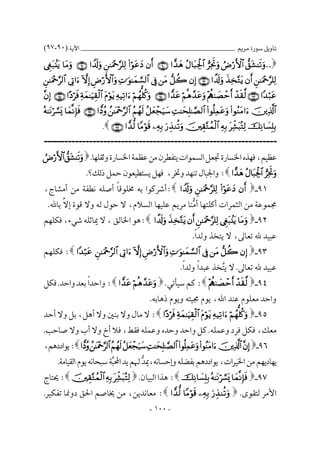 تأويل سورة مريم ــــــــــــــــــــــــــــــــــــــــ الآية (٩٠-٩٧)
﴿.. وَتَنشَقُّ ٱلۡأَرۡضُ وَتَخِرُّ ٱلۡجِبَالُ هَدًّا ۝ أَن دَعَوۡاْ لِلرَّحۡمَٰنِ وَلَدٗا ۝ وَمَا يَنۢبَغِي
لِلرَّحۡمَٰنِ أَن يَتَّخِذَ وَلَدًا ۝ إِن كُلُّ مَن فِي ٱلسَّمَٰوَٰتِ وَٱلۡأَرۡضِ إِلَّآ ءَاتِي ٱلرَّحۡمَٰنِ
عَبۡدٗا ۝ لَّقَدۡ أَحۡصَىٰهُمۡ وَعَدَّهُمۡ عَدّٗا ۝ وَكُلُّهُمۡ ءَاتِيهِ يَوۡمَ ٱلۡقِيَٰمَةِ فَرۡدًا ۝ إِنَّ
ٱلَّذِينَ ءَامَنُواْ وَعَمِلُواْ ٱلصَّٰلِحَٰتِ سَيَجۡعَلُ لَهُمُ ٱلرَّحۡمَٰنُ وُدّٗا ۝ فَإِنَّمَا يَسَّرۡنَٰهُ
بِلِسَانِكَ لِتُبَشِّرَ بِهِ ٱلۡمُتَّقِينَ وَتُنذِرَ بِهِۦ قَوۡمٗا لُّدّٗا ۝ ﴾.
عظيم، فهذه الخسارة تجعل السموات يتفطرن من عظمة الخسارة وثقلها. ﴿ وَتَنشَقُّ ٱلۡأَرۡضُ
وَتَخِرُّ ٱلۡجِبَالُ هَدًّا ﴾: والجبال تنهد وتخر، فهل يستطيعون حمل ذلك؟.
٩١- ﴿ أَن دَعَوۡاْ لِلرَّحۡمَٰنِ وَلَدٗا ﴾: أشركوا به مخلوقاً أصله نطفة من أمشاج،
مجموعة من الثمرات أكلتها أمنا مريم عليها السلام، لا حول له ولا قوة إلا بالله.
٩٢- ﴿ وَمَا يَنۢبَغِي لِلرَّحۡمَٰنِ أَن يَتَّخِذَ وَلَدًا ﴾: هو الخالق، لا يماثله شيء، فكلهم
عبيد لله تعالى، لا يتخذ ولداً.
٩٣- ﴿ إِن كُلُّ مَن فِي ٱلسَّمَٰوَٰتِ وَٱلۡأَرۡضِ إِلَّآ ءَاتِي ٱلرَّحۡمَٰنِ عَبۡدٗا ﴾: فكلهم
عبيد لله تعالى. لا يتخذ عبداً ولداً.
٩٤- ﴿ لَّقَدۡ أَحۡصَىٰهُمۡ وَعَدَّهُمۡ عَدّٗا ﴾: كم سيأتي. واحداً بعد واحد. فكل
واحد معلوم عند الله، يوم مجيئه ويوم ذهابه.
٩٥- ﴿ وَكُلُّهُمۡ ءَاتِيهِ يَوۡمَ ٱلۡقِيَٰمَةِ فَرۡدًا ﴾: لا مال ولا بنين ولا أهل، بل ولا أحد
معك، فكل فرد وعمله. كل واحد وحده وعمله فقط، فلا أخ ولا أب ولا صاحب.
٩٦- ﴿ إِنَّ ٱلَّذِينَ ءَامَنُواْ وَعَمِلُواْ ٱلصَّٰلِحَٰتِ سَيَجۡعَلُ لَهُمُ ٱلرَّحۡمَٰنُ وُدّٗا ﴾: يواددهم،
يهاديهم من الخيرات، يواددهم بفضله وإحسانه، يمدّ لهم يد المحبة سبحانه يوم القيامة.
٩٧- ﴿ فَإِنَّمَا يَسَّرۡنَٰهُ بِلِسَانِكَ ﴾: هذا البيان. ﴿ لِتُبَشِّرَ بِهِ ٱلۡمُتَّقِينَ ﴾: يحتاج
الأمر لتقوى. ﴿ وَتُنذِرَ بِهِۦ قَوۡمٗا لُّدّٗا ﴾: معاندين، من يخاصم الحق دونما تفكير.
- ١٠٠ -